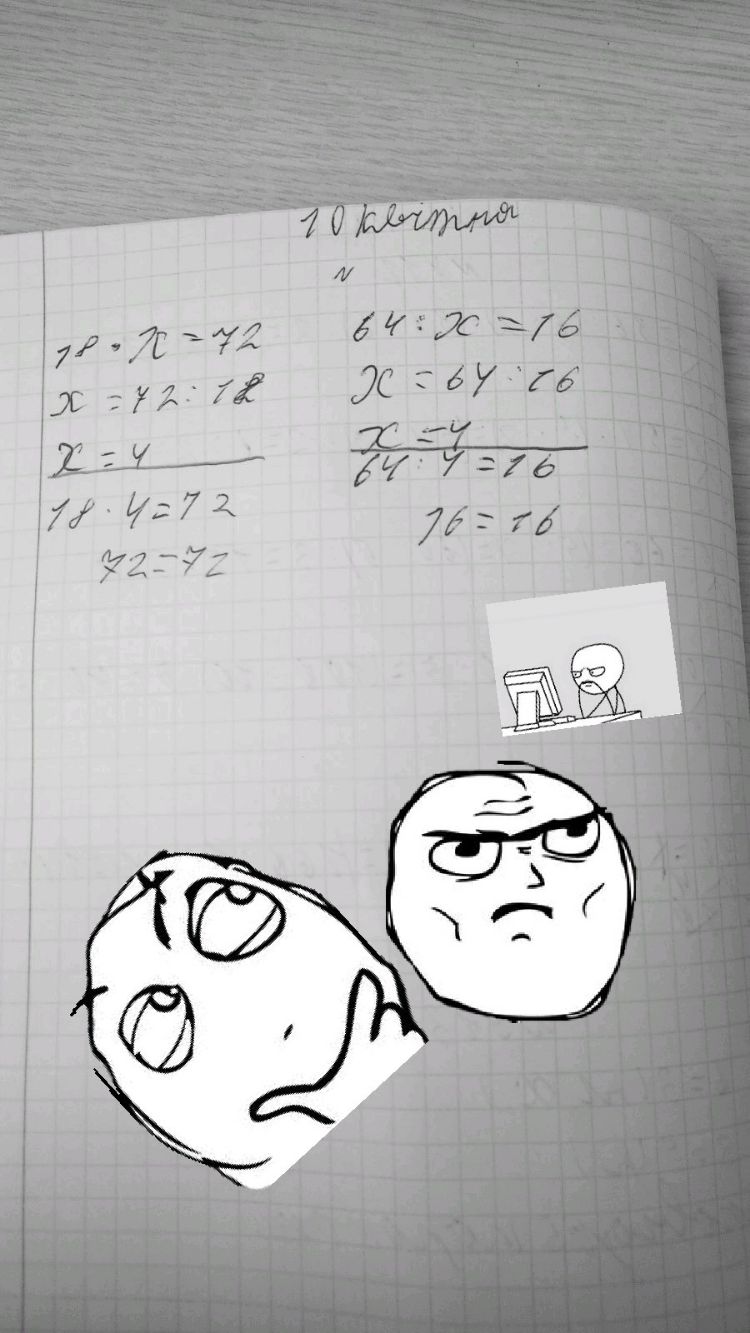 10 квітня
18 · x = 72
x = 72 : 18
x = 4
18 · 4 = 72
72 = 72
64 : x = 16
x = 64 : 16
x = 4
64 : 4 = 16
16 = 16